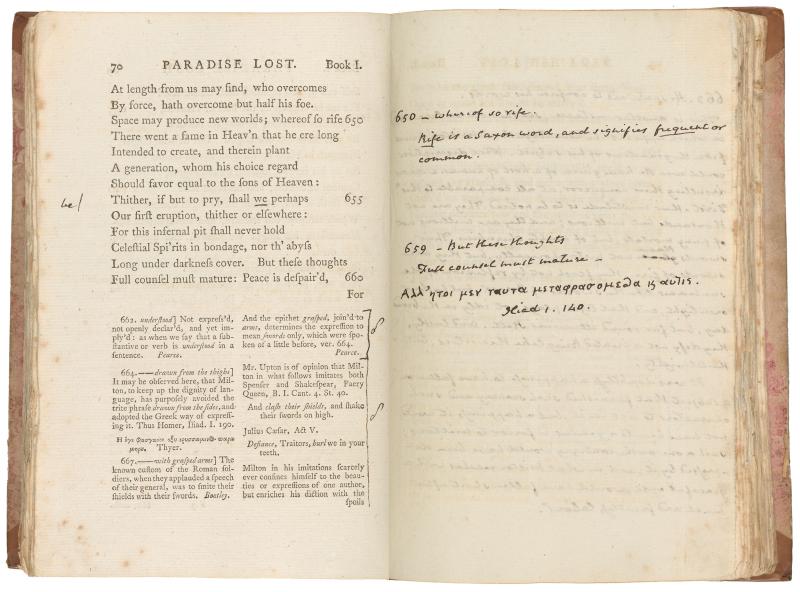 70 PARADISE LOST. Book I.
At length from us may find, who overcomes
By force, hath overcome but half his foe.
Space may produce new worlds; whereof ſo rife 650
There went a fame in Heav'n that he ere long
Intended to create, and therein plant
A generation, whom his choice regard
Should favor equal to the ſons of Heaven:
be/ Thither, if but to pry, ſhall we perhaps 655
Our firſt eruption, thither or elſewhere:
For this infernal pit ſhall never hold
Celeſtial Spi'rits in bondage, nor th' abyſs
Long under darkneſs cover. But theſe thoughts
Full counſel muſt mature: Peace is deſpair'd, 660
For
662. underſtood] Not expreſs'd,
not openly declar'd, and yet im-
ply'd: as when we ſay that a ſub-
ſtantive or verb is underſtood in a
ſentence. Pearce.
664.——drawn from the thighs]
It may be obſerved here, that Mil-
ton, to keep up the dignity of lan-
guage, has purpoſely avoided the
trite phraſe drawn from the ſides, and
adopted the Greek way of expreſſ-
ing it. Thus Homer, Iliad. I. 190.
Thyer.
667.——with graſped arms] The
known cuſtom of the Roman ſol-
diers, when they applauded a ſpeech
of their general, was to ſmite their
ſhields with their ſwords. Bentley.
And the epithet graſped, join'd to
arms, determines the expreſſion to
mean ſwords only, which were ſpo-
ken of a little before, ver. 664.
Pearce.
Mr. Upton is of opinion that Mil-
ton in what follows imitates both
Spenſer and Shakeſpear, Faery
Queen, B. I. Cant. 4. St. 40.
And claſh their ſhields, and ſhake
their ſwords on high.
Julius Cæſar, Act V.
Defiance, Traitors, hurl we in your
teeth.
Milton in his imitations ſcarcely
ever confines himſelf to the beau-
ties or expreſſions of one author,
but enriches his diction with the
ſpoils
650 – whereof so rife.
Rife is a Saxon word, and signifies frequent or
common.
659 – But these thoughts
Full counsel must mature –
Αλλ' ητοι μεν ταυτα μεταφρασομεσθα ϗ αυτις.
Iliad 1. 140.